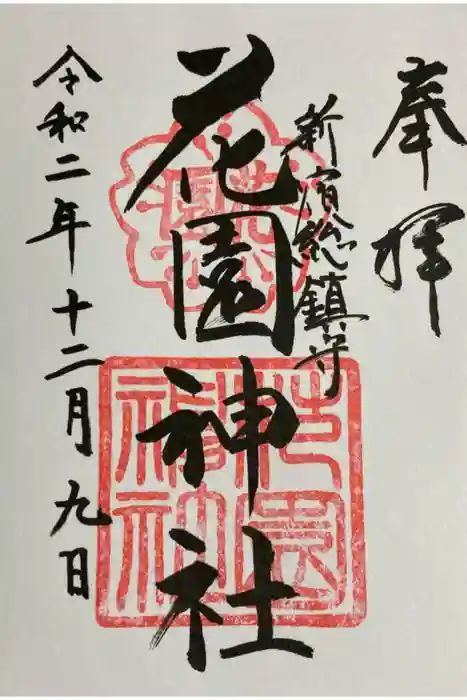 奉拝
新宿総鎮守
花園神社
令和二年十二月九日
花園神社